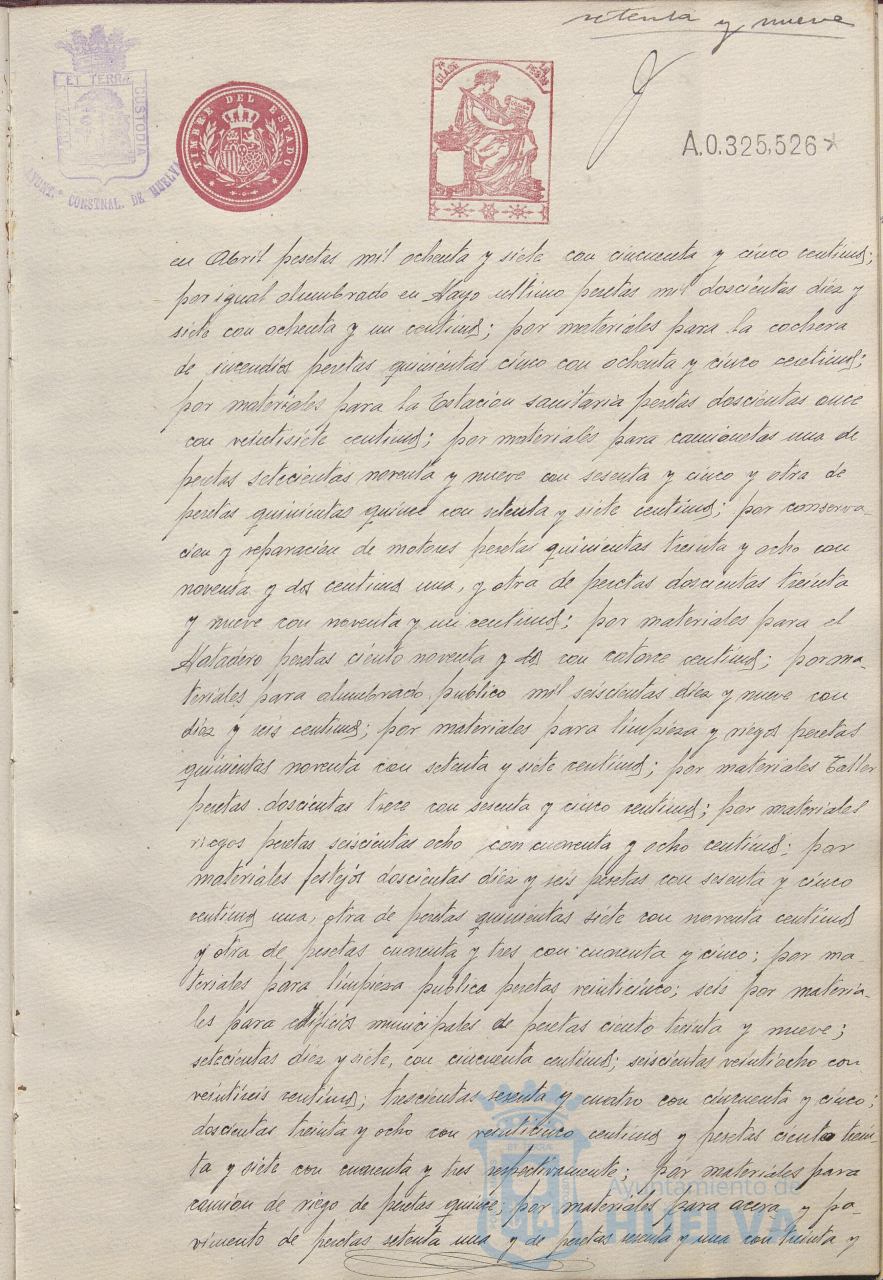 setenta y nueve
ET TERRA
CUSTODIA
AYUNT.º CONSTNAL. DE HUELVA
TIMBRE DEL ESTADO
7ª CLASE
PESETAS
A.0.325,526*
en Abril pesetas mil ochenta y siete con cincuenta y cinco centimos;
por igual alumbrado en Mayo ultimo pesetas mil doscientas diez y
siete con ochenta y un centimos; por materiales para la cochera
de incendios pesetas quinientas cinco con ochenta y cinco centimos;
por materiales para la Estación sanitaria pesetas doscientas once
con veintisiete centimos; por materiales para camionetas una de
pesetas setecientas noventa y nueve con sesenta y cinco y otra de
pesetas quinientas quince con setenta y siete centimos; por conserva-
cion y reparación de motores pesetas quinientas treinta y ocho con
noventa y dos centimos una, y otra de pesetas doscientas treinta
y nueve con noventa y un centimos; por materiales para el
Matadero pesetas ciento noventa y dos con catorce centimos; por ma-
teriales para alumbrado publico mil seiscientas diez y nueve con
diez y seis centimos; por materiales para limpieza y riegos pesetas
quinientas noventa con setenta y siete centimos; por materiales Taller
pesetas doscientas trece con sesenta y cinco centimos; por materiales
riegos pesetas seiscientas ocho con cuarenta y ocho centimos; por
materiales festejos doscientas diez y seis pesetas con sesenta y cinco
centimos una, otra de pesetas quinientas siete con noventa centimos
y otra de pesetas cuarenta y tres con cuarenta y cinco; por ma-
teriales para limpieza publica pesetas veinticinco; seis por materia-
les para edificios municipales de pesetas ciento treinta y nueve;
setecientas diez y siete, con cincuenta centimos; seiscientas veintiocho con
veintiseis centimos; trescientas sesenta y cuatro con cincuenta y cinco;
doscientas treinta y ocho con veinticinco centimos y pesetas ciento trein-
ta y siete con cuarenta y tres respectivamente; por materiales para
camión de riego de pesetas quince; por materiales para acera y pa-
vimento de pesetas setenta una y de pesetas sesenta y una con treinta y
Ayuntamiento de
HUELVA